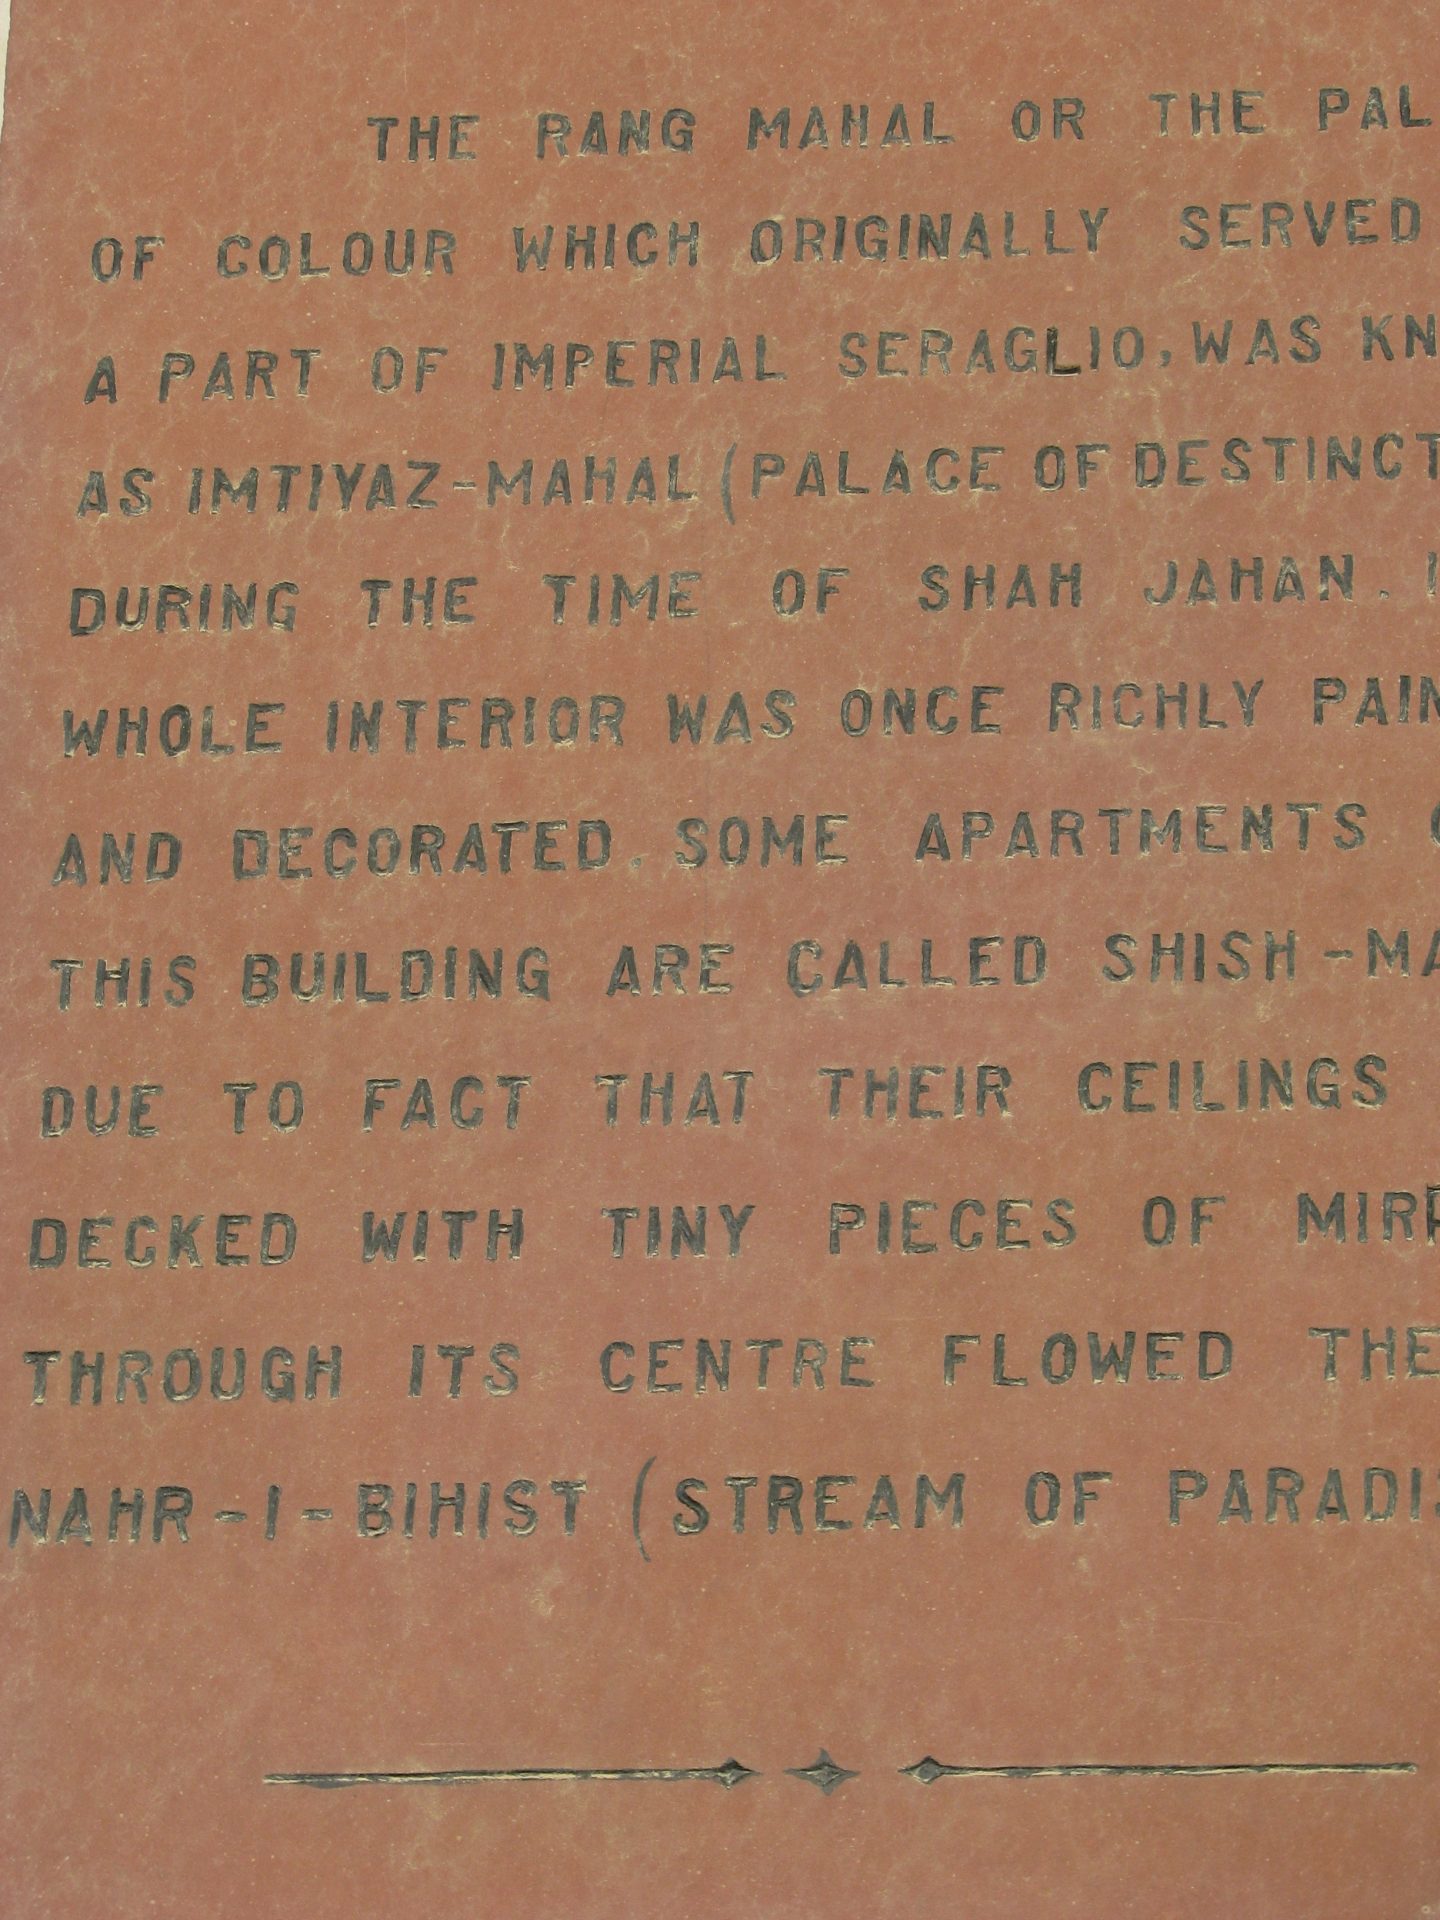 THE RANG MAHAL OR THE PAL
OF COLOUR WHICH ORIGINALLY SERVED
A PART OF IMPERIAL SERAGLIO, WAS KN
AS IMTIYAZ-MAHAL (PALACE OF DESTINCT
DURING THE TIME OF SHAH JAHAN.
WHOLE INTERIOR WAS ONCE RICHLY PAIN
AND DECORATED. SOME APARTMENTS
THIS BUILDING ARE CALLED SHISH-MA
DUE TO FACT THAT THEIR CEILINGS
DECKED WITH TINY PIECES OF MIRR
THROUGH ITS CENTRE FLOWED THE
NAHR-I-BIHIST (STREAM OF PARADI